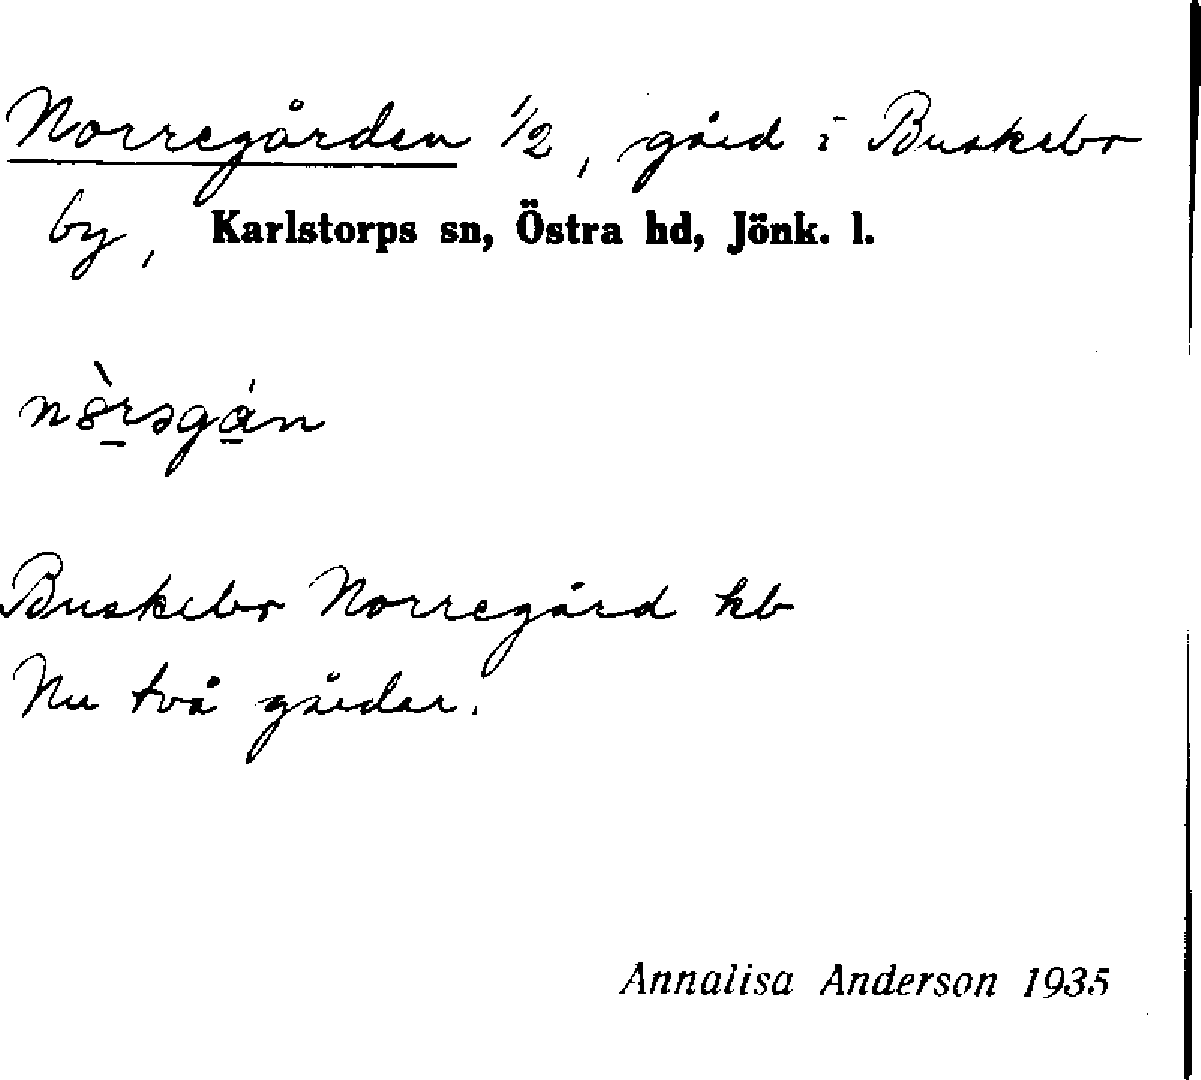 Norregården 1/2, gård i Buskebo
by, Karlstorps sn, Östra hd, Jönk. l.
Buskebo Norregård kb
Nu två gårdar.
Annalisa Anderson 1935